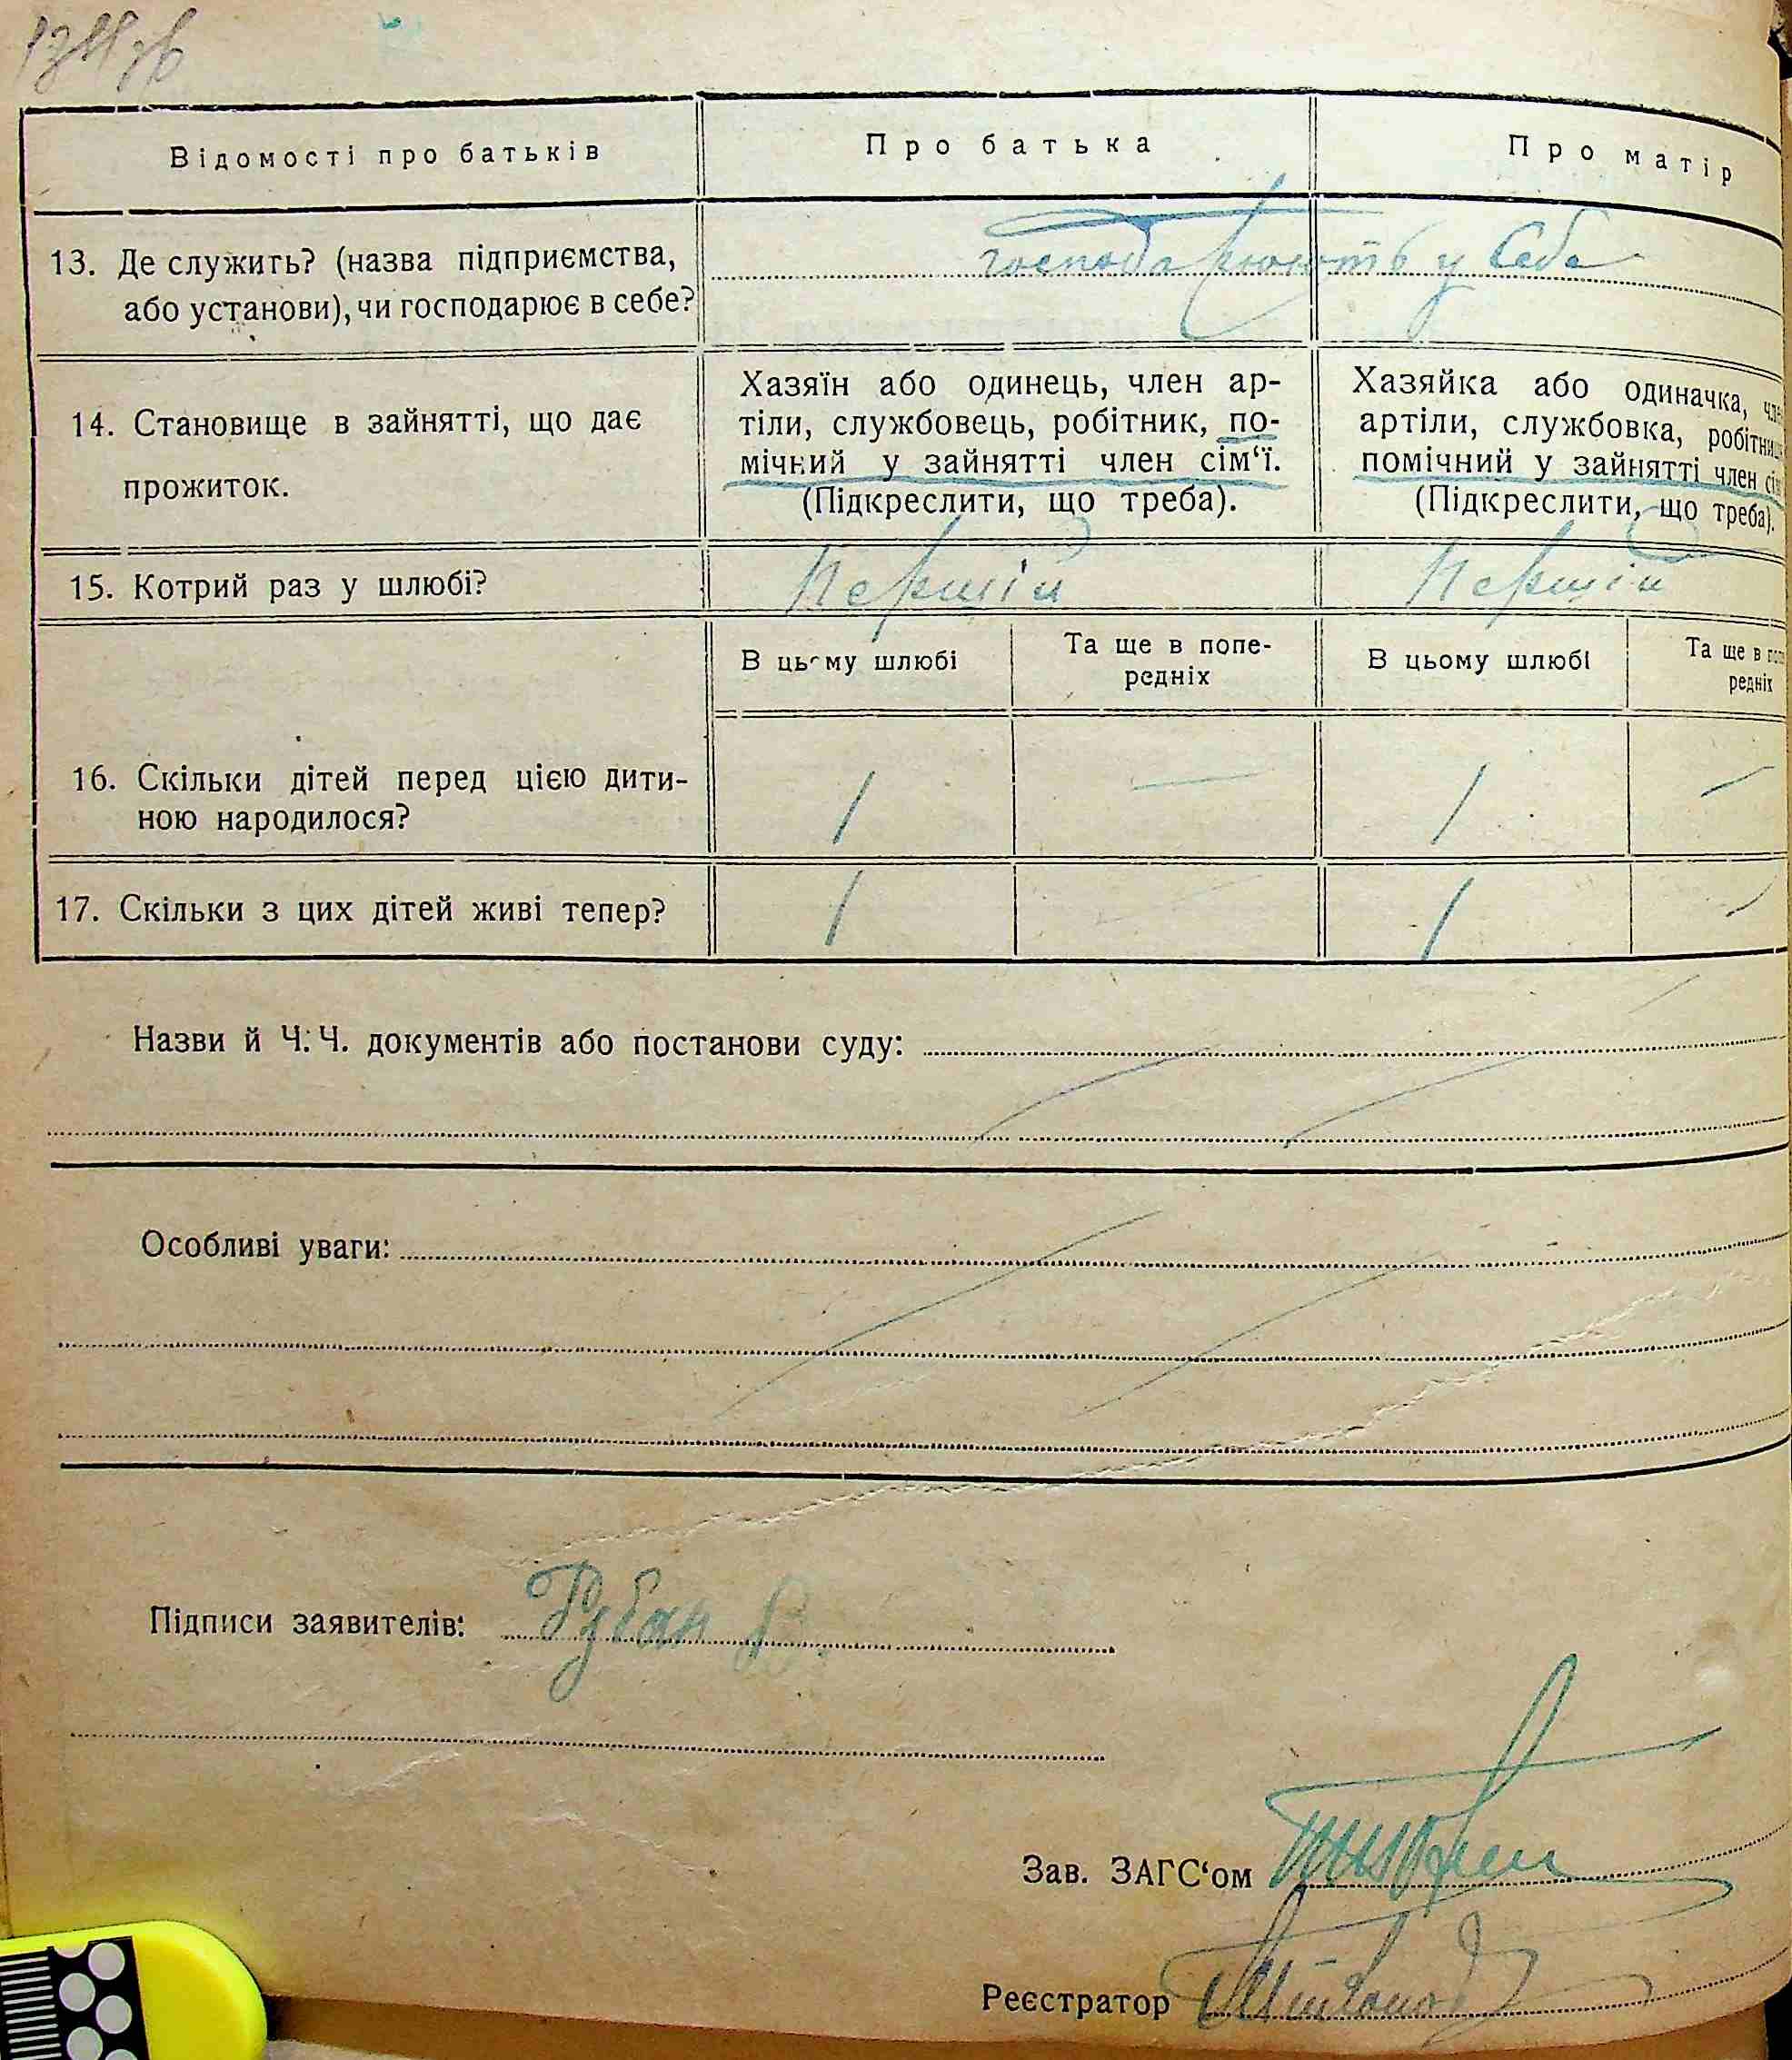 Відомості про батьків
Про батька
Про матір
13. Де служить? (назва підприємства,
або установи), чи господарює в себе?
господарюють у себе
14. Становище в зайнятті, що дає
прожиток.
Хазяїн або одинець, член ар-
тіли, службовець, робітник, по-
мічний у зайнятті член сім‘ї.
(Підкреслити, що треба).
Хазяйка або одиначка,
артіли, службовка,
помічний у зайнятті член
(Підкреслити, що треба).
15. Котрий раз у шлюбі?
Перший
Перший
В цьому шлюбі
Та ще в попе-
редніх
В цьому шлюбі
Та ще в
редніх
16. Скільки дітей перед цією дити-
ною народилося?
1 — 1 —
17. Скільки з цих дітей живі тепер?
1 — 1 —
Назви й Ч.Ч. документів або постанови суду:
Особливі уваги:
Підписи заявителів: Рубан В.
Зав. ЗАГС‘ом
Реєстратор